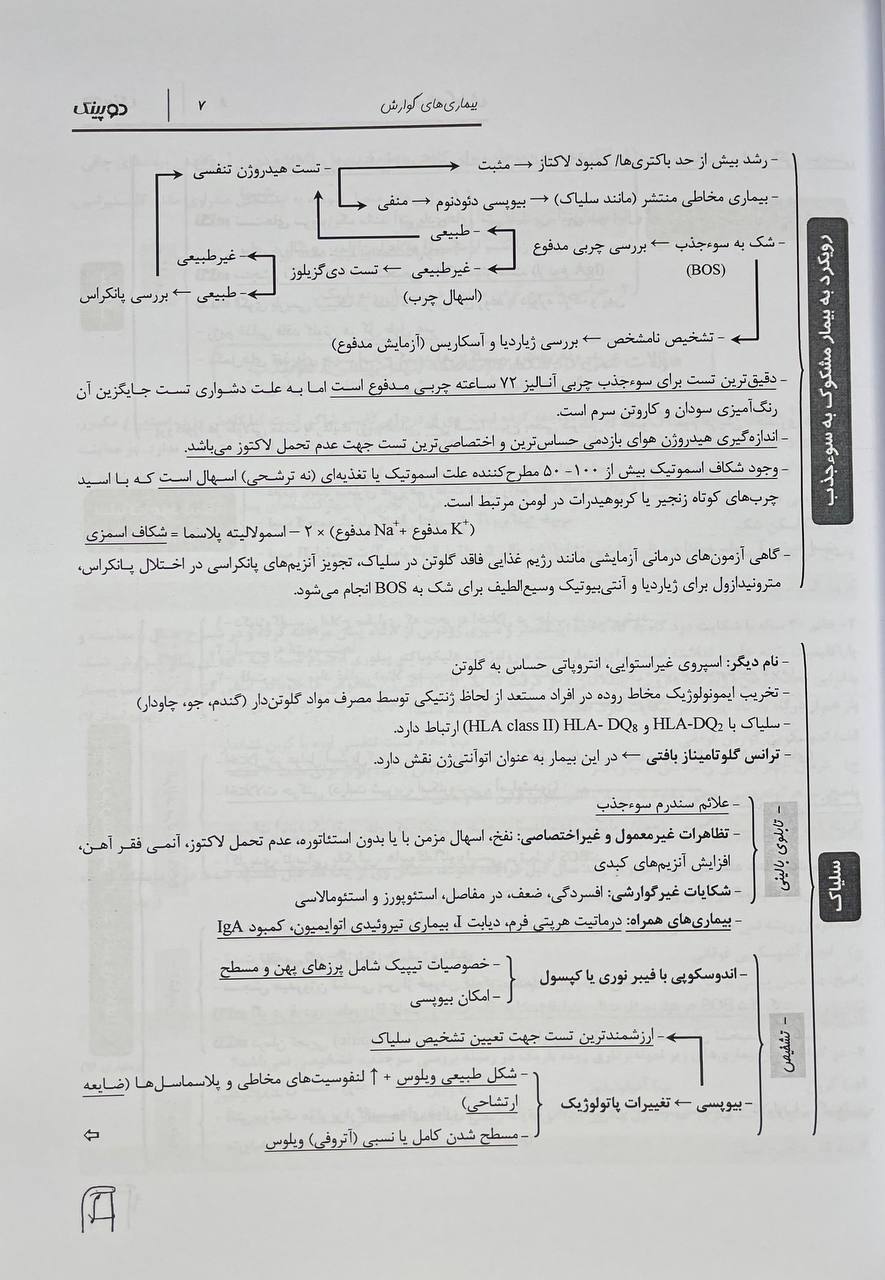 بیماری‌های گوارش ۷ دوپینگ
رویکرد به بیمار مشکوک به سوءجذب
– رشد بیش از حد باکتری‌ها/ کمبود لاکتاز → مثبت
– تست هیدروژن تنفسی
– بیماری مخاطی منتشر (مانند سلیاک) → بیوپسی دئودنوم → منفی
– طبیعی
– شک به سوءجذب ← بررسی چربی مدفوع
(BOS)
– غیرطبیعی ← تست دی‌گزیلوز
(اسهال چرب)
– غیرطبیعی
– طبیعی ← بررسی پانکراس
– تشخیص نامشخص ← بررسی ژیاردیا و آسکاریس (آزمایش مدفوع)
– دقیق‌ترین تست برای سوءجذب چربی آنالیز ۷۲ ساعته چربی مدفوع است اما به علت دشواری تست جایگزین آن
رنگ‌آمیزی سودان و کاروتن سرم است.
– اندازه‌گیری هیدروژن هوای بازدمی حساس‌ترین و اختصاصی‌ترین تست جهت عدم تحمل لاکتوز می‌باشد.
– وجود شکاف اسموتیک بیش از ۱۰۰– ۵۰ مطرح‌کننده علت اسموتیک یا تغذیه‌ای (نه ترشحی) اسهال است که با اسید
چرب‌های کوتاه زنجیر یا کربوهیدرات در لومن مرتبط است.
(K+ مدفوع + Na+ مدفوع) × ۲ – اسمولالیته پلاسما = شکاف اسمزی
– گاهی آزمون‌های درمانی آزمایشی مانند رژیم غذایی فاقد گلوتن در سلیاک، تجویز آنزیم‌های پانکراسی در اختلال پانکراس،
مترونیدازول برای ژیاردیا و آنتی‌بیوتیک وسیع‌الطیف برای شک به BOS انجام می‌شود.
سلیاک
– نام دیگر: اسپروی غیراستوایی، انتروپاتی حساس به گلوتن
– تخریب ایمونولوژیک مخاط روده در افراد مستعد از لحاظ ژنتیکی توسط مصرف مواد گلوتن‌دار (گندم، جو، چاودار)
– سلیاک با HLA-DQ2 و HLA- DQ8 (HLA class II) ارتباط دارد.
– ترانس گلوتامیناز بافتی ← در این بیمار به عنوان اتوآنتی‌ژن نقش دارد.
– تابلوی بالینی
– علائم سندرم سوءجذب
– تظاهرات غیرمعمول و غیراختصاصی: نفخ، اسهال مزمن با یا بدون استئاتوره، عدم تحمل لاکتوز، آنمی فقر آهن،
افزایش آنزیم‌های کبدی
– شکایات غیرگوارشی: افسردگی، ضعف، در مفاصل، استئوپورز و استئومالاسی
– بیماری‌های همراه: درماتیت هرپتی فرم، دیابت I، بیماری تیروئیدی اتوایمیون، کمبود IgA
– تشخیص
– اندوسکوپی با فیبر نوری یا کپسول
– خصوصیات تیپیک شامل پرزهای پهن و مسطح
– امکان بیوپسی
– ارزشمندترین تست جهت تعیین تشخیص سلیاک
– بیوپسی ← تغییرات پاتولوژیک
– شکل طبیعی ویلوس + ↑ لنفوسیت‌های مخاطی و پلاسماسل‌ها (ضایعه
ارتشاحی)
– مسطح شدن کامل یا نسبی (آتروفی) ویلوس
⇦